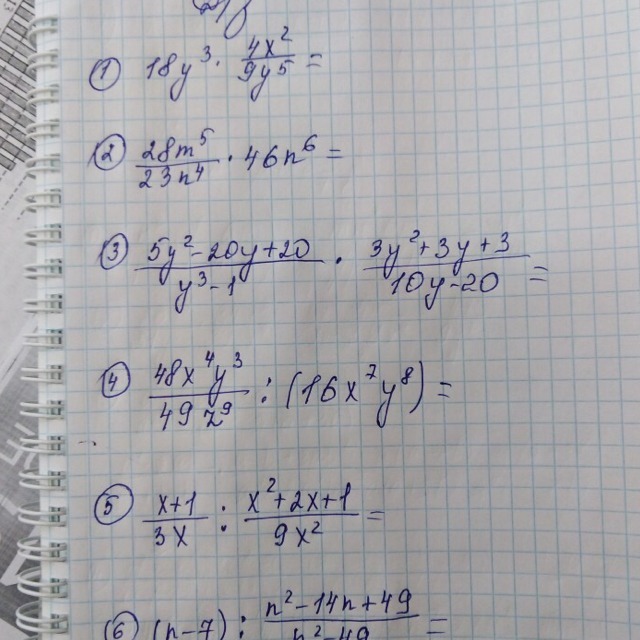 Д/з
① 18y³ · 4x²/9y5 =
② 28m⁵/23n⁴ · 46n⁶ =
③ 5y²-20y+20/y³-1 · 3y²+3y+3/10y-20 =
④ 48x⁴y³/49z⁹ : (16x⁷y⁸) =
⑤ x+1/3x : x²+2x+1/9x² =
⑥ (n-7) : n²-14n+49/n²-49 =